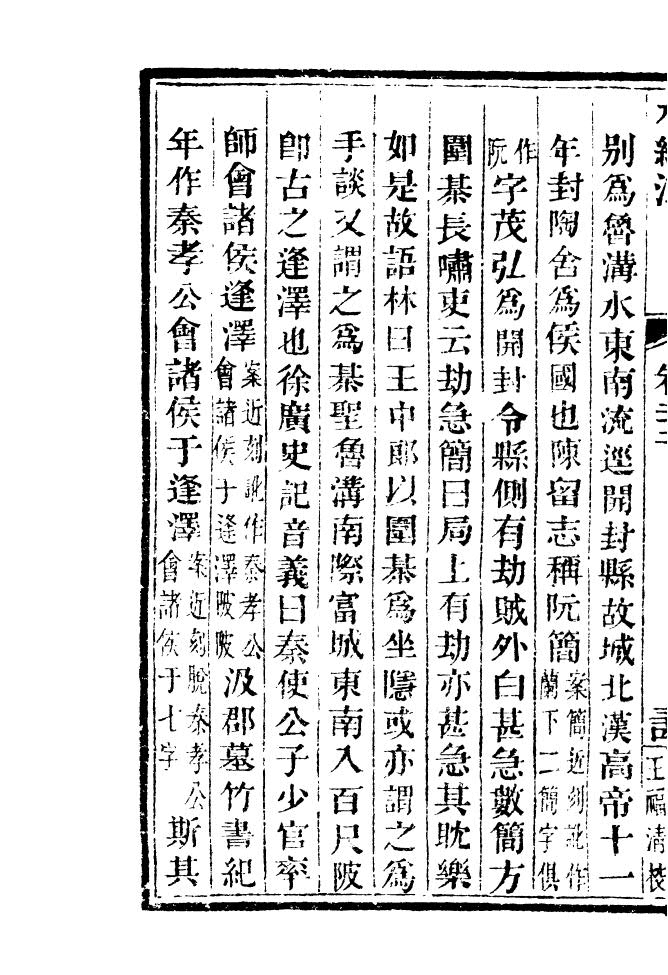 別爲魯溝水東南流逕開封縣故城北漢高帝十一
年封陶舍爲侯國也陳留志稱阮簡案簡近刻訛作蘭下二簡字俱
作阮字茂弘爲開封令縣側有劫賊外白甚急數簡方
圍棊長嘯吏云劫急簡曰局上有劫亦甚急其耽樂
如是故語林曰王中郎以圍棊爲坐隱或亦謂之爲
手談又謂之爲棊聖魯溝南際富城東南入百尺陂
卽古之逢澤也徐廣史記音義曰秦使公子少官率
師會諸侯逢澤案近刻訛作秦孝公會諸侯于逢澤陂陂汲郡墓竹書紀
年作秦孝公會諸侯于逢澤案近刻脫秦孝公會諸侯于七字斯其
王福清校